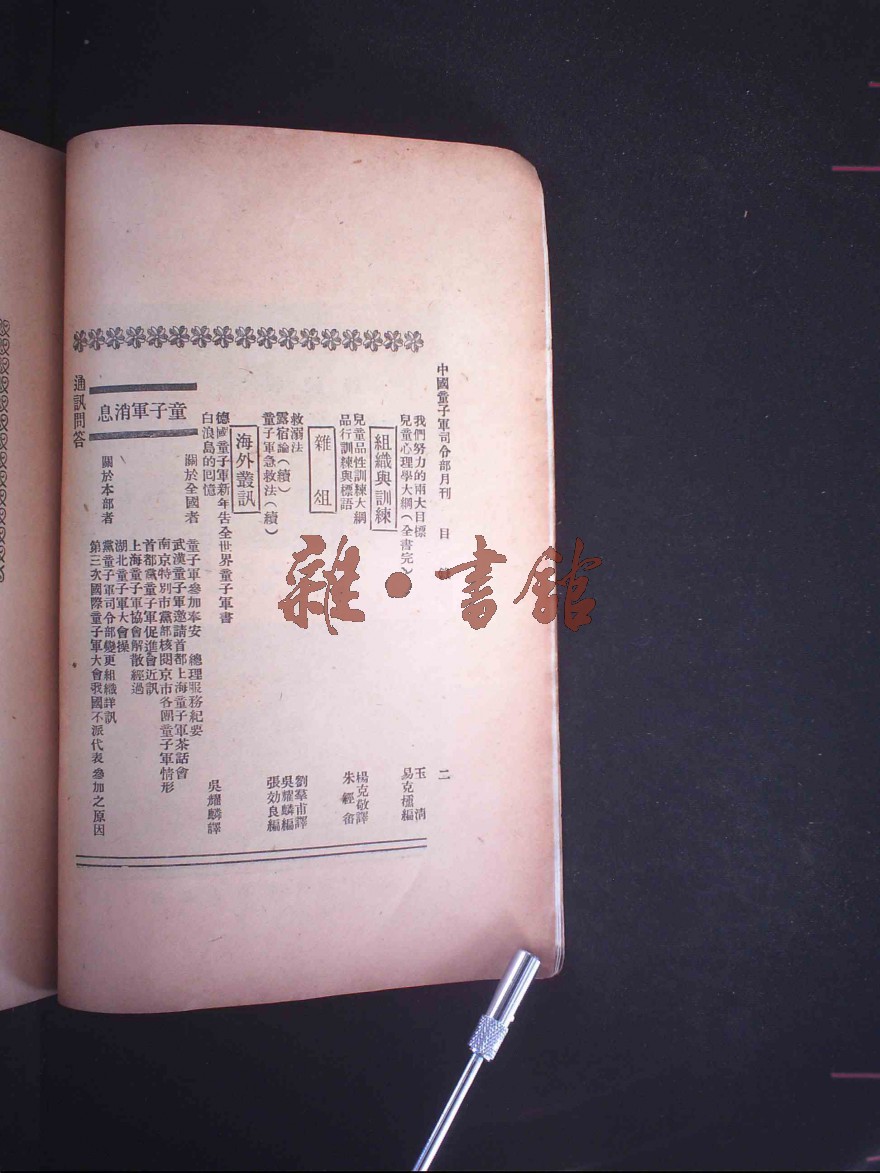 中國童子軍司令部月刊　目　二
我們努力的兩大目標　玉清
兒童心理學大綱(全書完)　易克櫄編
組織與訓練
兒童品性訓練大綱　楊克敬譯
品行訓練與標語　朱經畬
雜俎
救溺法　劉羣甫譯
露宿論(續)　吳耀麟編
童子軍急救法(續)　張効良編
海外叢訊
德國童子軍新年告全世界童子軍書　吳耀麟譯
白浪島的回憶
童子軍消息
關於全國者
童子軍參加奉安　總理服務紀要
武漢童子軍邀請首都上海童子軍茶話會
南京特別市黨部核閱京市各團童子軍情形
首都黨童子軍促進會近訊
上海童子軍協會解散經過
湖北童子軍大會操
關於本部者
黨童子軍司令部變更組織詳訊
第三次國際童子軍大會我國不派代表參加之原因
通訊問答
雜·書館